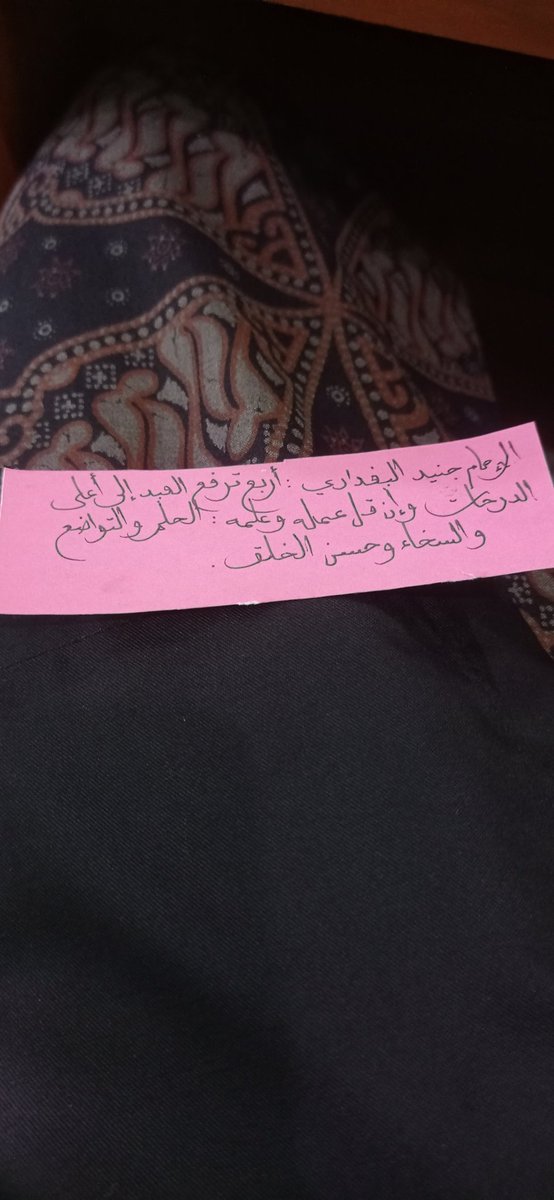 الإمام جنيد البغدادي : أربع ترفع العبد إلى أعلى
الدرجات وإن قل عمله وعلمه : الحلم والتواضع
والسخاء وحسن الخلق .